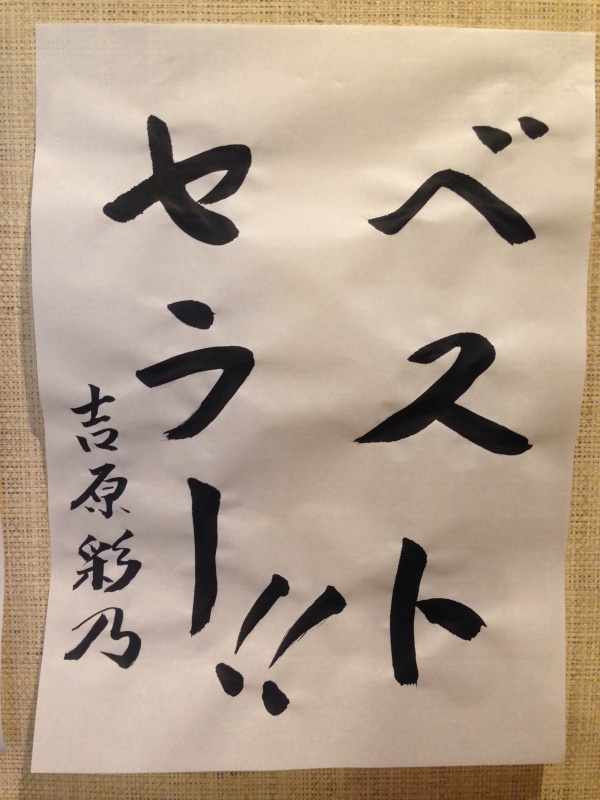 ベスト
セラー!!
吉原彩乃